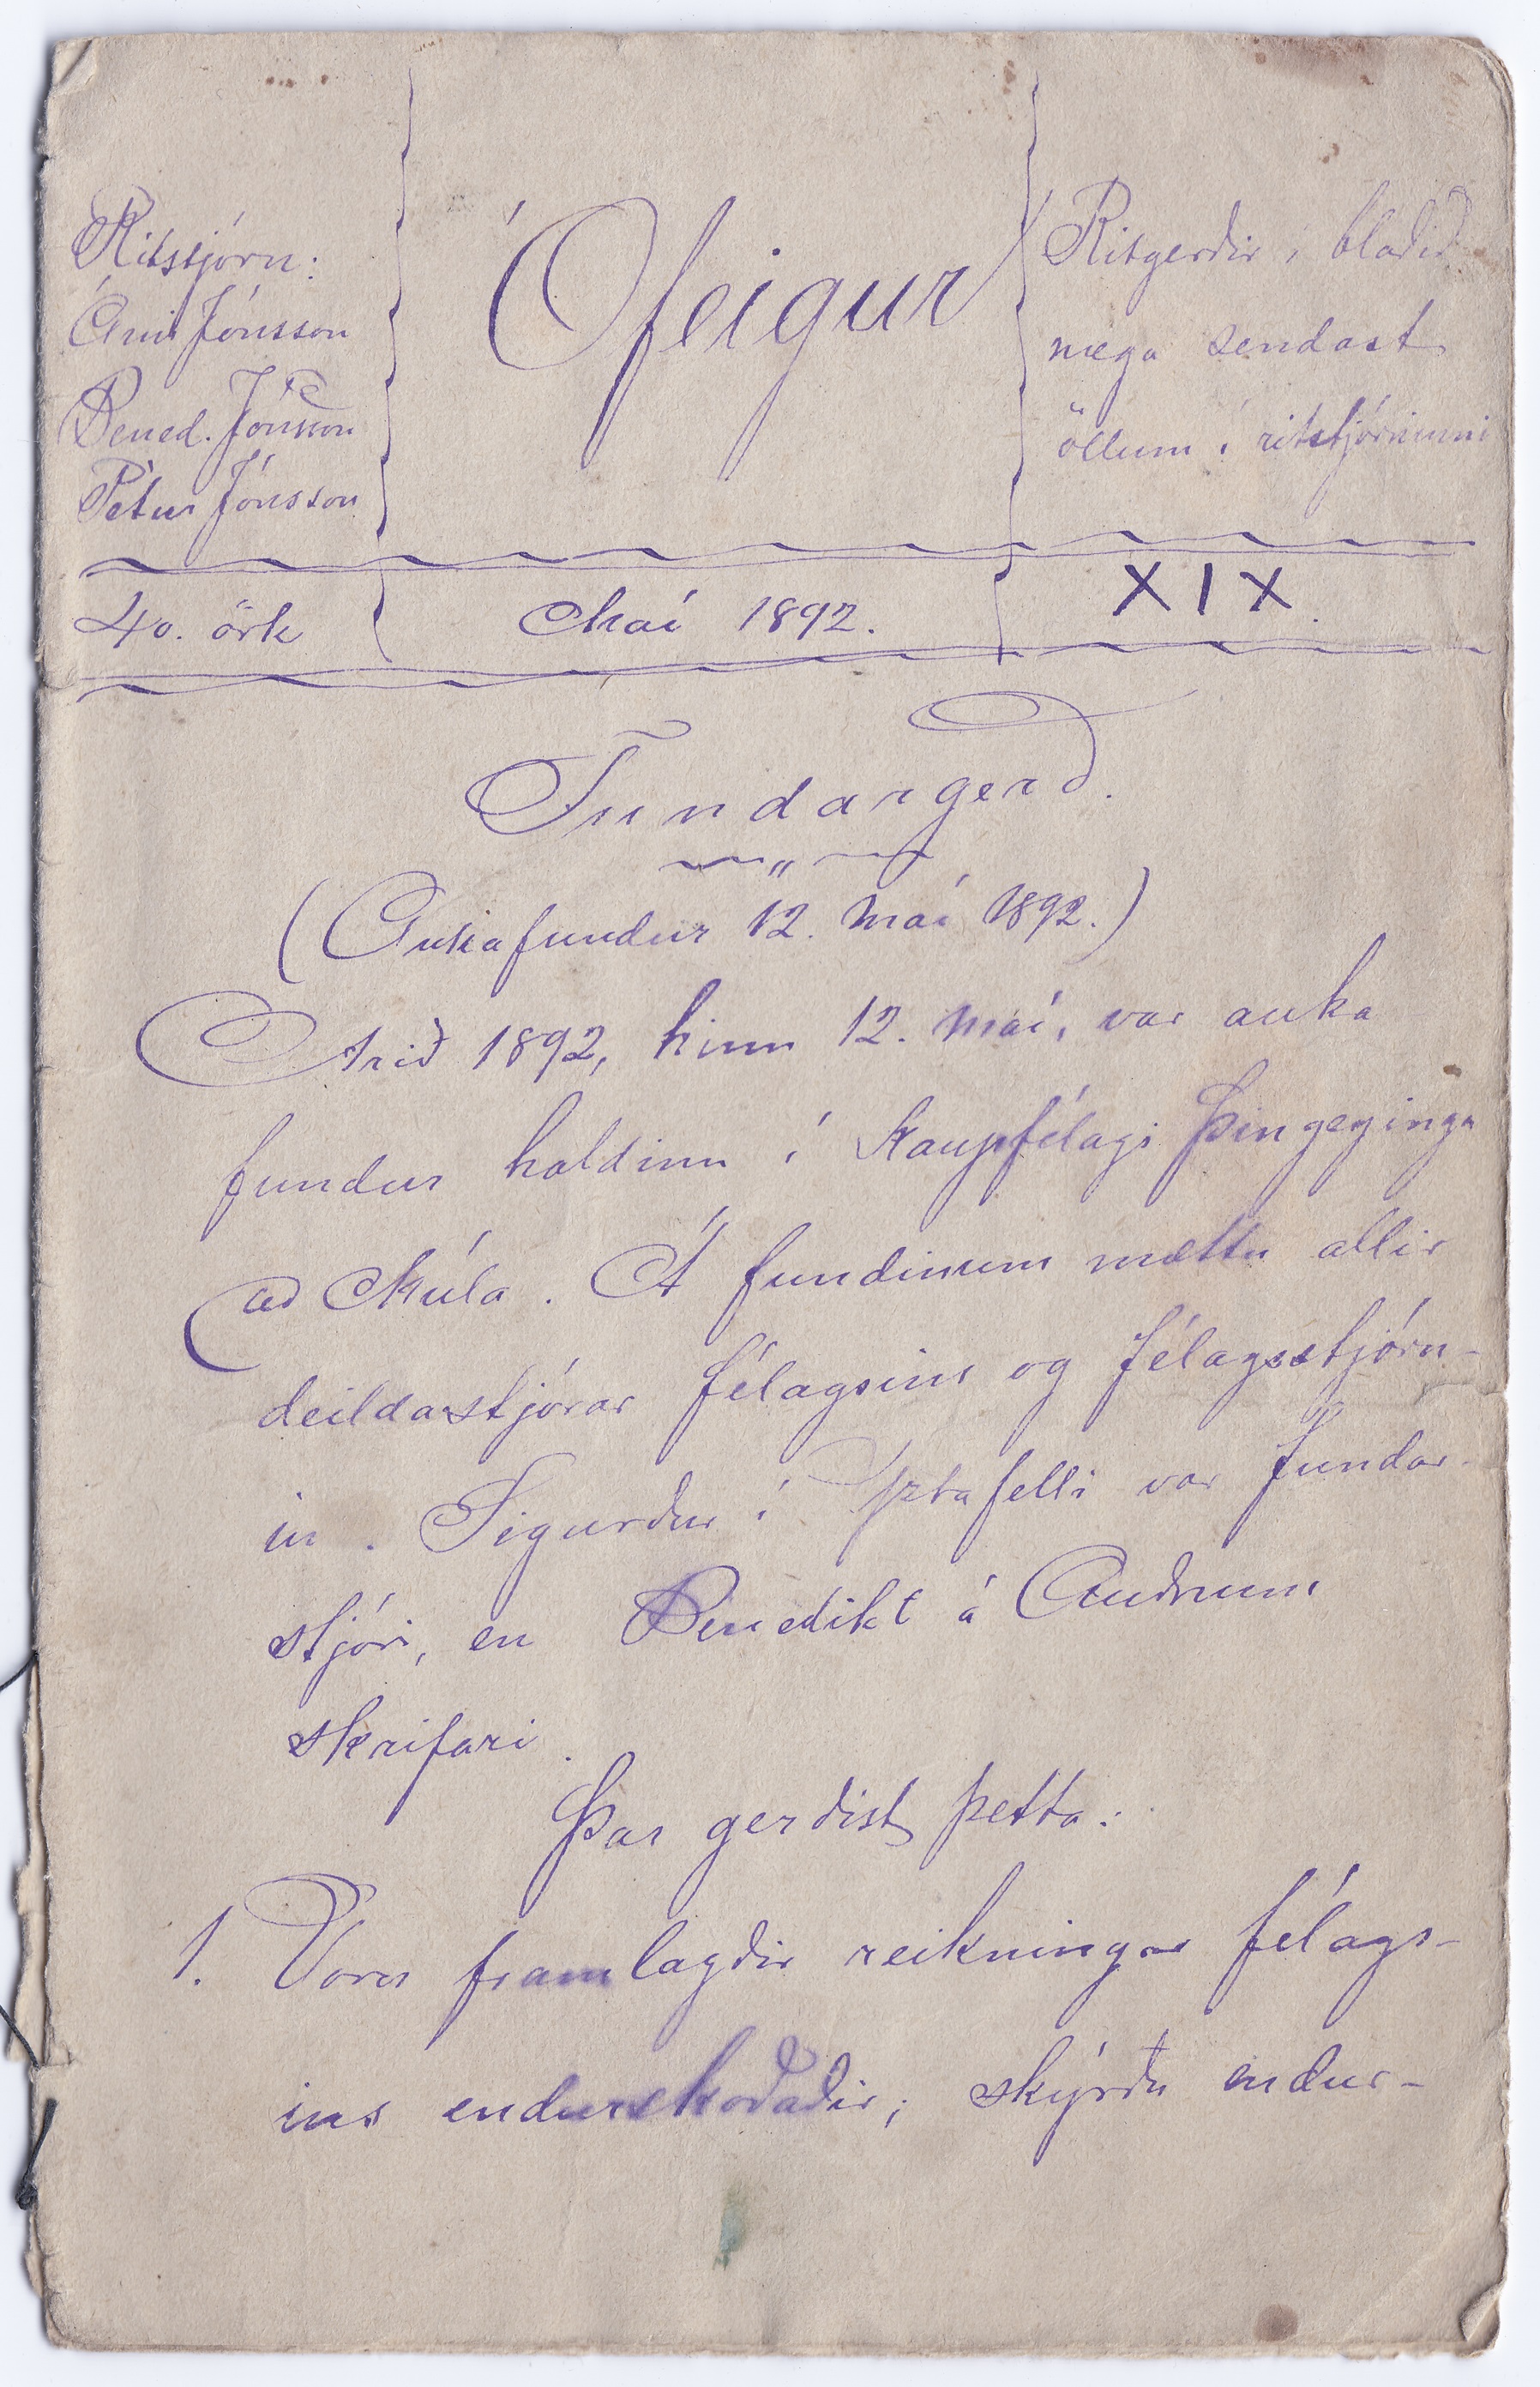 Ritstjórn:
Árni Jónsson
Bened. Jónsson
Pétur Jónsson
Ófeigur
Ritgerðir í blaðið
mega sendast
öllum í ritstjórninni
40. örk
Maí 1892.
XIX.
Fundargerð.
(Aukafundur 12. maí 1892.)
Árið 1892, hinn 12. maí, var auka
fundur haldinn í Kaupfélagi Þingeyinga
að Múla. Á fundinum mættu allir
deildastjórar félagsins og félagsstjórn-
in. Sigurður í Yztafelli var fundar-
stjóri, en Benedikt á Auðnum
skrifari.
Þar gerðist þetta:
1. Voru framlagðir reikningar félags-
ins endurskoðaðir; skýrðu endur-